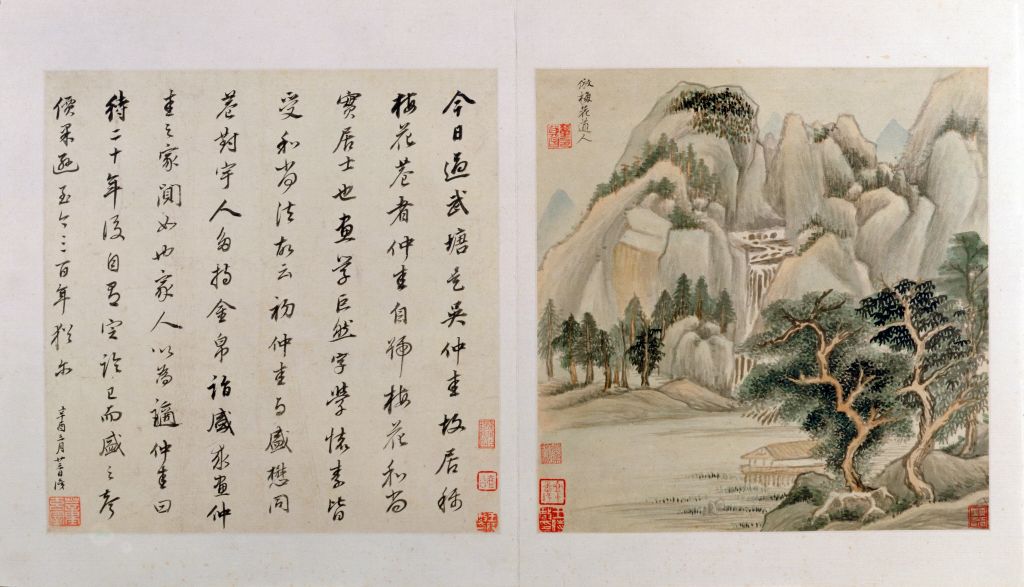 今日過武塘是吳仲圭故居稱
梅花菴者仲圭自號梅花和尚
實居士也畫學巨然字學懷素皆
受和尚法故云初仲圭与盛懋同
巷對宇人多持金帛詣盛求畫仲
圭之家闃如也家人以為適仲圭曰
待二十年後自有定論已而盛之
價果遜至今三百年猶尔
辛酉二月廿
倣梅花道人